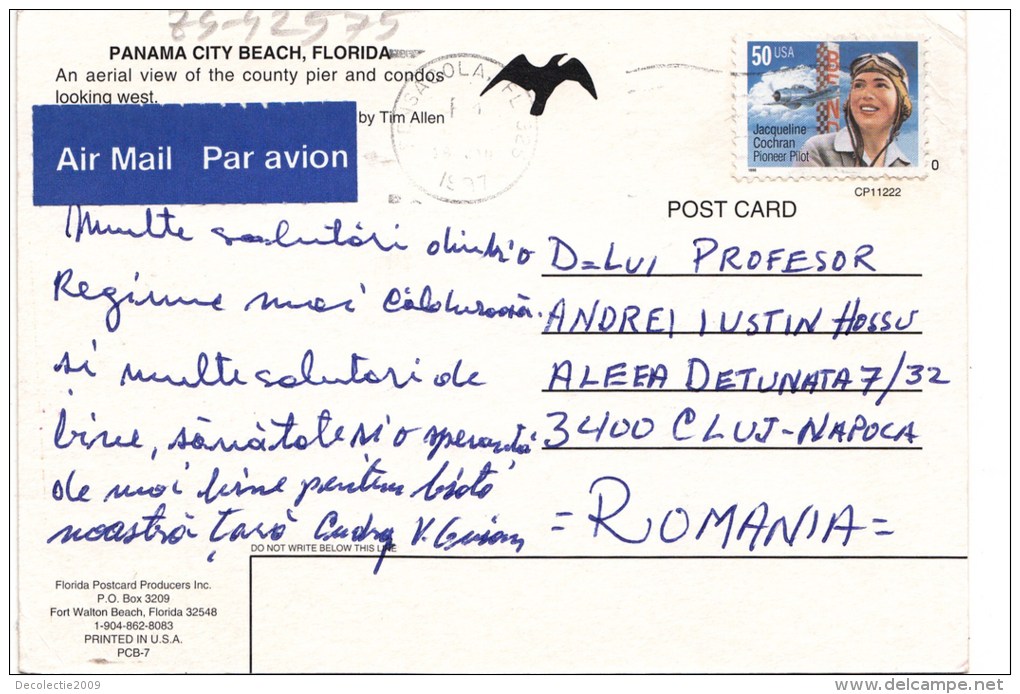 75-42575
PANAMA CITY BEACH, FLORIDA
An aerial view of the county pier and condos
looking west.
by Tim Allen
Air Mail Par avion
PENSACOLA, FL 325
1997
50 USA
BENDIX
Jacqueline
Cochran
Pioneer Pilot
1996
0
CP11222
POST CARD
Multe salutări dintr'o
Regiune mai călduroasă.
si multe salutari de
bine, sănătate si o speranță
de mai bine pentru biata
noastră țară
D-LUI PROFESOR
ANDREI IUSTIN HOSSU
ALEEA DETUNATA 7/32
3400 CLUJ-NAPOCA
=ROMANIA=
DO NOT WRITE BELOW THIS LINE
Florida Postcard Producers Inc.
P.O. Box 3209
Fort Walton Beach, Florida 32548
1-904-862-8083
PRINTED IN U.S.A.
PCB-7
Decolectie2009
www.delcampe.net